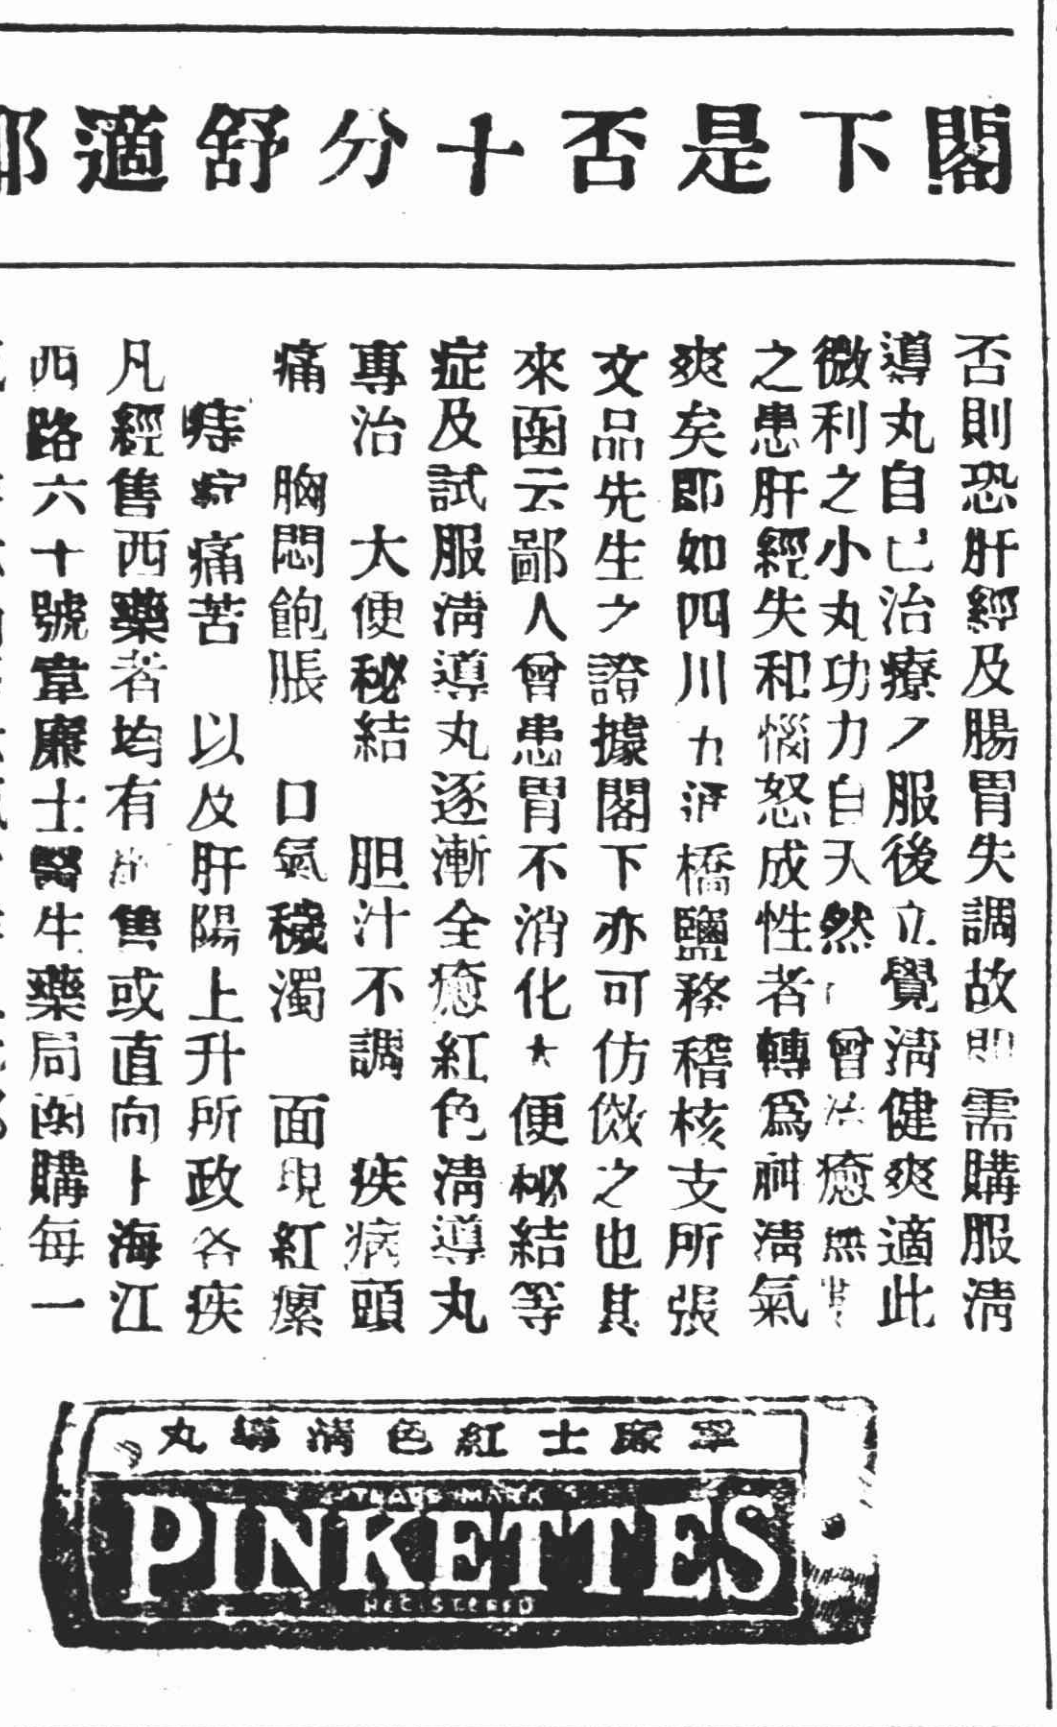 閣下是否十分舒適
否則恐肝經及腸胃失調故即需購服清
導丸自己治療 服後立覺清健爽適此
微利之小丸功力自天然 曾治癒無
之患肝經失和惱怒成性者轉為 清氣
爽矣即如四川 橋鹽務稽核支所張
文品先生之證據閣下亦可仿傚之也其
來函云鄙人曾患胃不消化大便秘結等
症及試服清導丸逐漸全癒紅色清導丸
專治 大便秘結 胆汁不調 疾病頭
痛 胸悶飽脹 口氣穢濁 面現紅瘰
痔 痛苦 以及肝陽上升所政各疾
凡經售西藥者均有 售或直向上海江
西路六十號韋廉士醫生藥局函購每一
韋廉士紅色清導丸
TRADE MARK
PINKETTES
REGISTERED